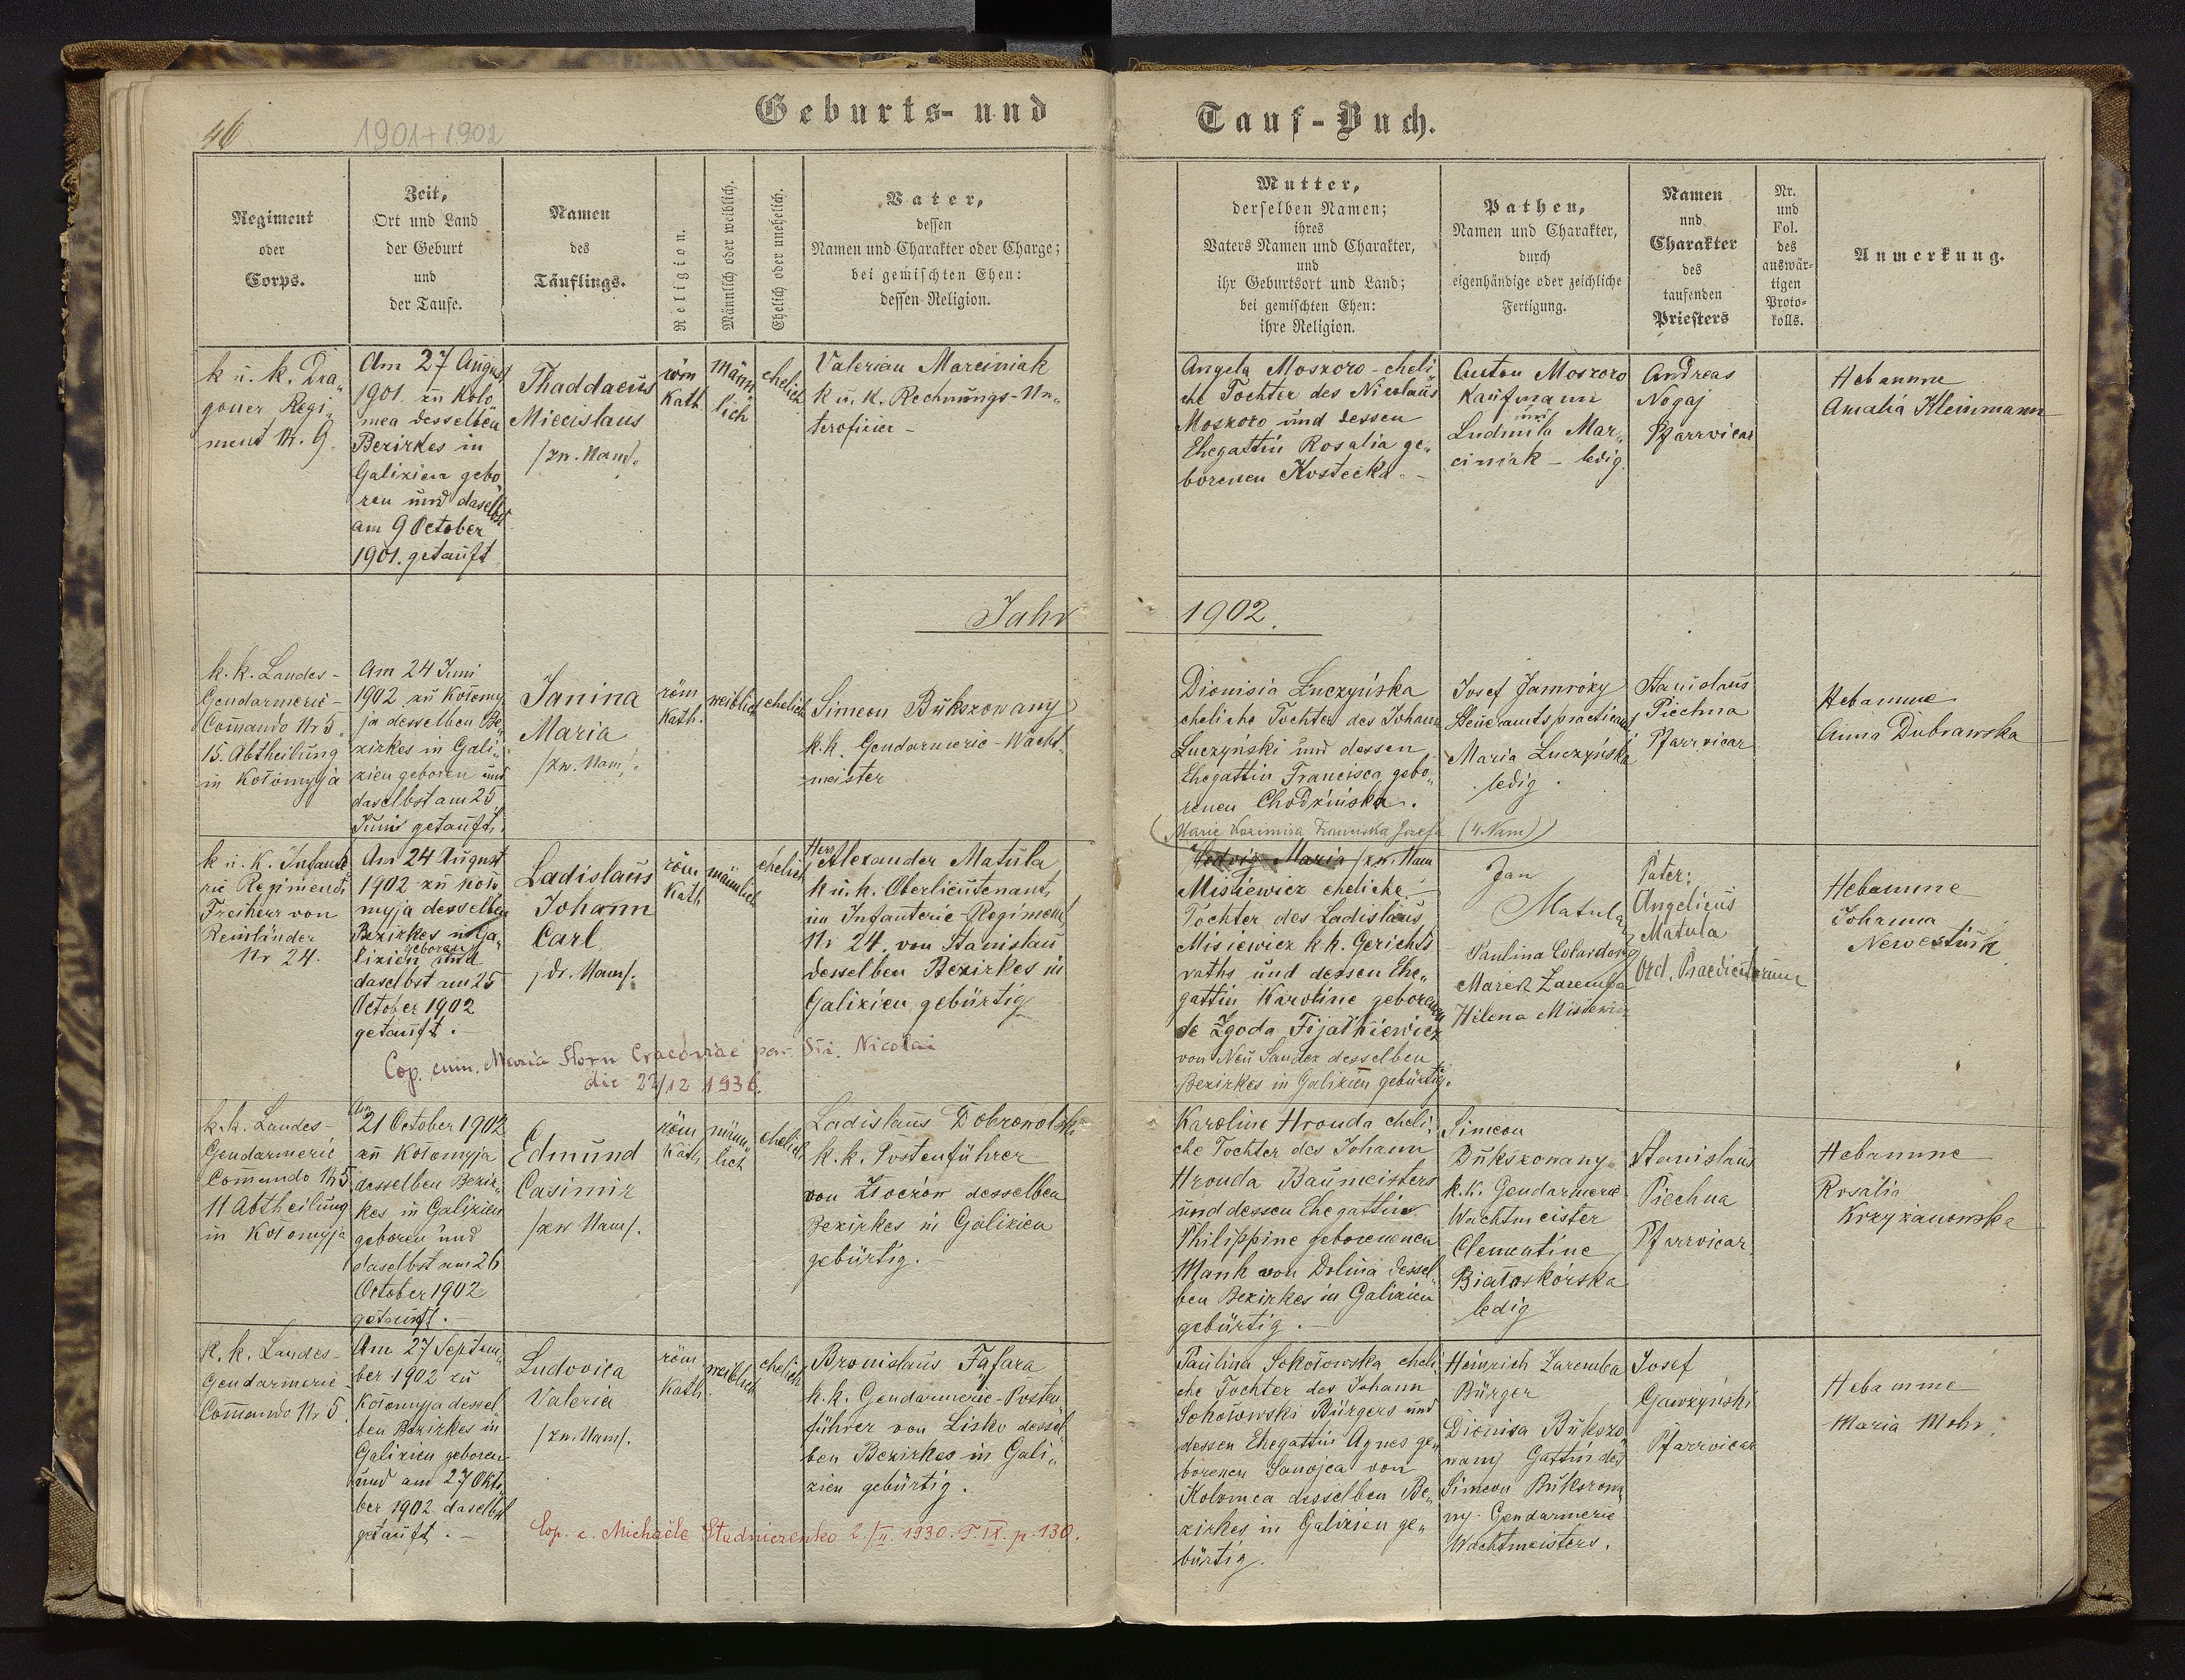 46
1901 + 1902
Geburts- und
Tauf-Buch.
Regiment
oder
Corps.
Zeit,
Ort und Land
der Geburt
und
der Taufe.
Namen
des
Täuflings.
Religion.
Männlich oder weiblich.
Ehelich oder unehelich.
Vater,
dessen
Namen und Charakter oder Charge;
bei gemischten Ehen:
dessen Religion.
Mutter,
derselben Namen;
ihres
Vaters Namen und Charakter,
und
ihr Geburtsort und Land;
bei gemischten Ehen:
ihre Religion.
Pathen,
Namen und Charakter,
durch
eigenhändige oder zeichliche
Fertigung.
Namen
und
Charakter
des
taufenden
Priesters
Nr.
und
Fol.
des
auswär-
tigen
Proto-
kolls.
Anmerkung.
k u. k. Dra„
goner Regi„
ment N. 9.
Am 27 August
1901. zu Kolo
mea desselben
Bezirkes in
Galizien gebo
ren und daselbst
am 9 October
1901. getauft
Thaddaeus
Miecislaus
/zw. Nam/.
röm
Kath.
Männ
lich
ehelich
Valerian Marciniak
k u. k. Rechnungs-Un„
terofizier -
Angela Moszoro - eheli„
che Tochter des Nicolaus
Moszoro und dessen
Ehegattin Rosalia ge„
borenen Kostecka. -
Anton Moszoro
Kaufmann
und
Ludmila Mar„
ciniak - ledig.
Andreas
Nogaj
Pfarrvicar
Hebamme
Amalia Kleinmann
Jahr 1902.
k. k. Landes-
Gendarmerie-
Commando Nr 5.
15. Abtheilung
in Kołomyja
Am 24 Juni
1902 zu Kołomy
ja desselben Be„
zirkes in Gali„
zien geboren und
daselbst am 25
Junis getauft.
Janina
Maria
/zw. Nam/.
röm
Kath.
weiblich
ehelich
Simeon Bukszowany
k.k. Gendarmerie-Wacht„
meister
Dionisia Łuczyńska
eheliche Tochter des Johann
Łuczyński und dessen
Ehegattin Francisca gebo„
renen Chodzińska.
Josef Jamroży
Steueramtspracticant
Maria Łuczyńska
ledig.
Stanislaus
Piechna
Pfarrvicar
Hebamme
Anna Dubrawska
k u. K. Infante
rie Regiment
Freiherr von
Reinländer
Nr 24.
Am 24 August
1902 zu Koło
myja desselben
Bezirkes in Ga„
lizien geboren und
daselbst am 25
October 1902
getauft. -
Ladislaus
Johann
Carl
/dr. Nam/.
röm
Kath
männlich
ehelich
Herr
Alexander Matula
k u. k. Oberlieutenant
im Infanterie-Regiment
Nr 24. von Stanislau
desselben Bezirkes in
Galizien gebürtig
(Marie Kazimira Franciska Josefa (4 Nam))
Hedwig Maria /zw. Nam
Misiewicz eheliche
Tochter des Ladislaus
Misiewicz k k. Gerichts
raths und dessen Ehe„
gattin Karoline geborenen
de Zgoda Fijałkiewicz
von Neu Sandez desselben
Bezirkes in Galizien gebürtig.
Jan
Matula
Paulina
Marek Zaremba
Helena Misiewicz
Pater:
Angelicus
Matula
Ord. Praedicatorum
Hebamme
Johanna
Newestiuk
Cop. cum. Maria Horn Cracoviae par. Sti. Nicolai
die 22/12 1936.
k. k. Landes-
Gendarmerie
Commando Nr 5
11 Abtheilung
in Kołomyja
Am
21 October 1902
zu Kołomyja
desselben Bezir„
kes in Galizien
geboren und
daselbst am 26
October 1902
getauft. -
Edmund
Casimir
/zw Nam/.
röm
Kath
männ
lich
ehelich
Ladislaus Dobrowolski
k. k. Postenführer
von Złoczów desselben
Bezirkes in Galizien
gebürtig. -
Karoline Hrouda eheli„
che Tochter des Johann
Hrouda Baumeisters
und dessen Ehegattin
Philippine geborenenen
Mank von Dolina dessel„
ben Bezirkes in Galizien
gebürtig. -
Simeon
Bukszowany
k.k. Gendarmerie
Wachtmeister
Clementine
Białoskórska
ledig
Stanislaus
Piechna
Pfarrvicar
Hebamme
Rosalia
Krzyżanowska
k. k. Landes-
Gendarmerie-
Commando Nr 5.
Am 27 Septem„
ber 1902 zu
Kołomyja dessel
ben Bezirkes in
Galizien geboren
und am 27 Okto
ber 1902 daselbst
getauft. -
Ludovica
Valeria
/zw. Nam/.
röm
Kath.
weiblich
ehelich
Bronislaus Fafara
k. k. Gendarmerie-Posten„
führer von Lisko dessel„
ben Bezirkes in Gali„
zien gebürtig.
Paulina Sokołowska eheli„
che Tochter des Johann
Sokołowski Bürgers und
dessen Ehegattin Agnes ge„
borenen Sanojca von
Kolomea desselben Be„
zirkes in Galizien ge„
bürtig.
Heinrich Zaremba
Bürger
Dionisa Bukszo
wany Gattin des
Simeon Bukszowa
ny - Gendarmerie
Wachtmeisters.
Josef
Gawżyński
Pfarrvicar
Hebamme
Maria Mohr.
Cop. c. Michaële Stadniczenko 2./II. 1930. T. IX. p. 130.